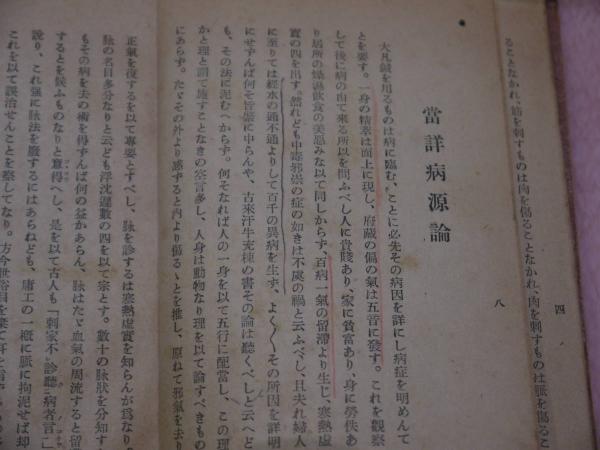 ることなかれ、筋を刺すものは肉を傷ることなかれ、肉を刺すものは脈を傷るこ
四
八
當詳病源論
大凡鍼を用るものは病に臨む、ことに必先その病因を詳にし病症を明めんて
とを要す。一身の精華は面上に現し、府藏の偏の氣は五音に發す。これを觀察
して後に病の由て來る所以を問ふべし人に貴賤あり、家に貧富あり、身に勞佚あ
り居所の燥濕飮食の美惡みな以て同しからず、百病一氣の留滯より生じ、寒熱虛
實の四を出す。然れども中毒邪祟の症の如きは不虞の禍と云ふべし、且夫れ婦人
に至りては經行の通不通よりして百千の異病を生ず、よく〱その所因を詳明
にせずんば何そ旨綮に中らんや、古來汗牛充棟の書その論は聽くべしと云へど
も、その法に泥むへからず。何そなれば人の一身を以て五行に配當し、この理
かと理と謂て施すことなきの空言多し、人身は動物なり理を以て論すべきもの
にあらず。たゞその外より感ずると内より傷るゝとを推し、原ねて邪氣を去り
正氣を復するを以て專要とすべし、脉を診するは寒熱虛實を知らんが爲なり
脉の名目多分なりと云ども浮沈遲數の四を以て宗とす。數十の脉狀を分知す
もその病を去の術を得ずんば何の益かあらん、脉はたゞ血氣の周流すると留
するとを候ふものなりと意得へし、是を以て古人も「刺家不診聽病者言」
說り、これ強に脉法を廢するにはあらねども、庸工の一槪に脈に拘泥せば却
これを以て誤治せんことを察してなり。方今世俗